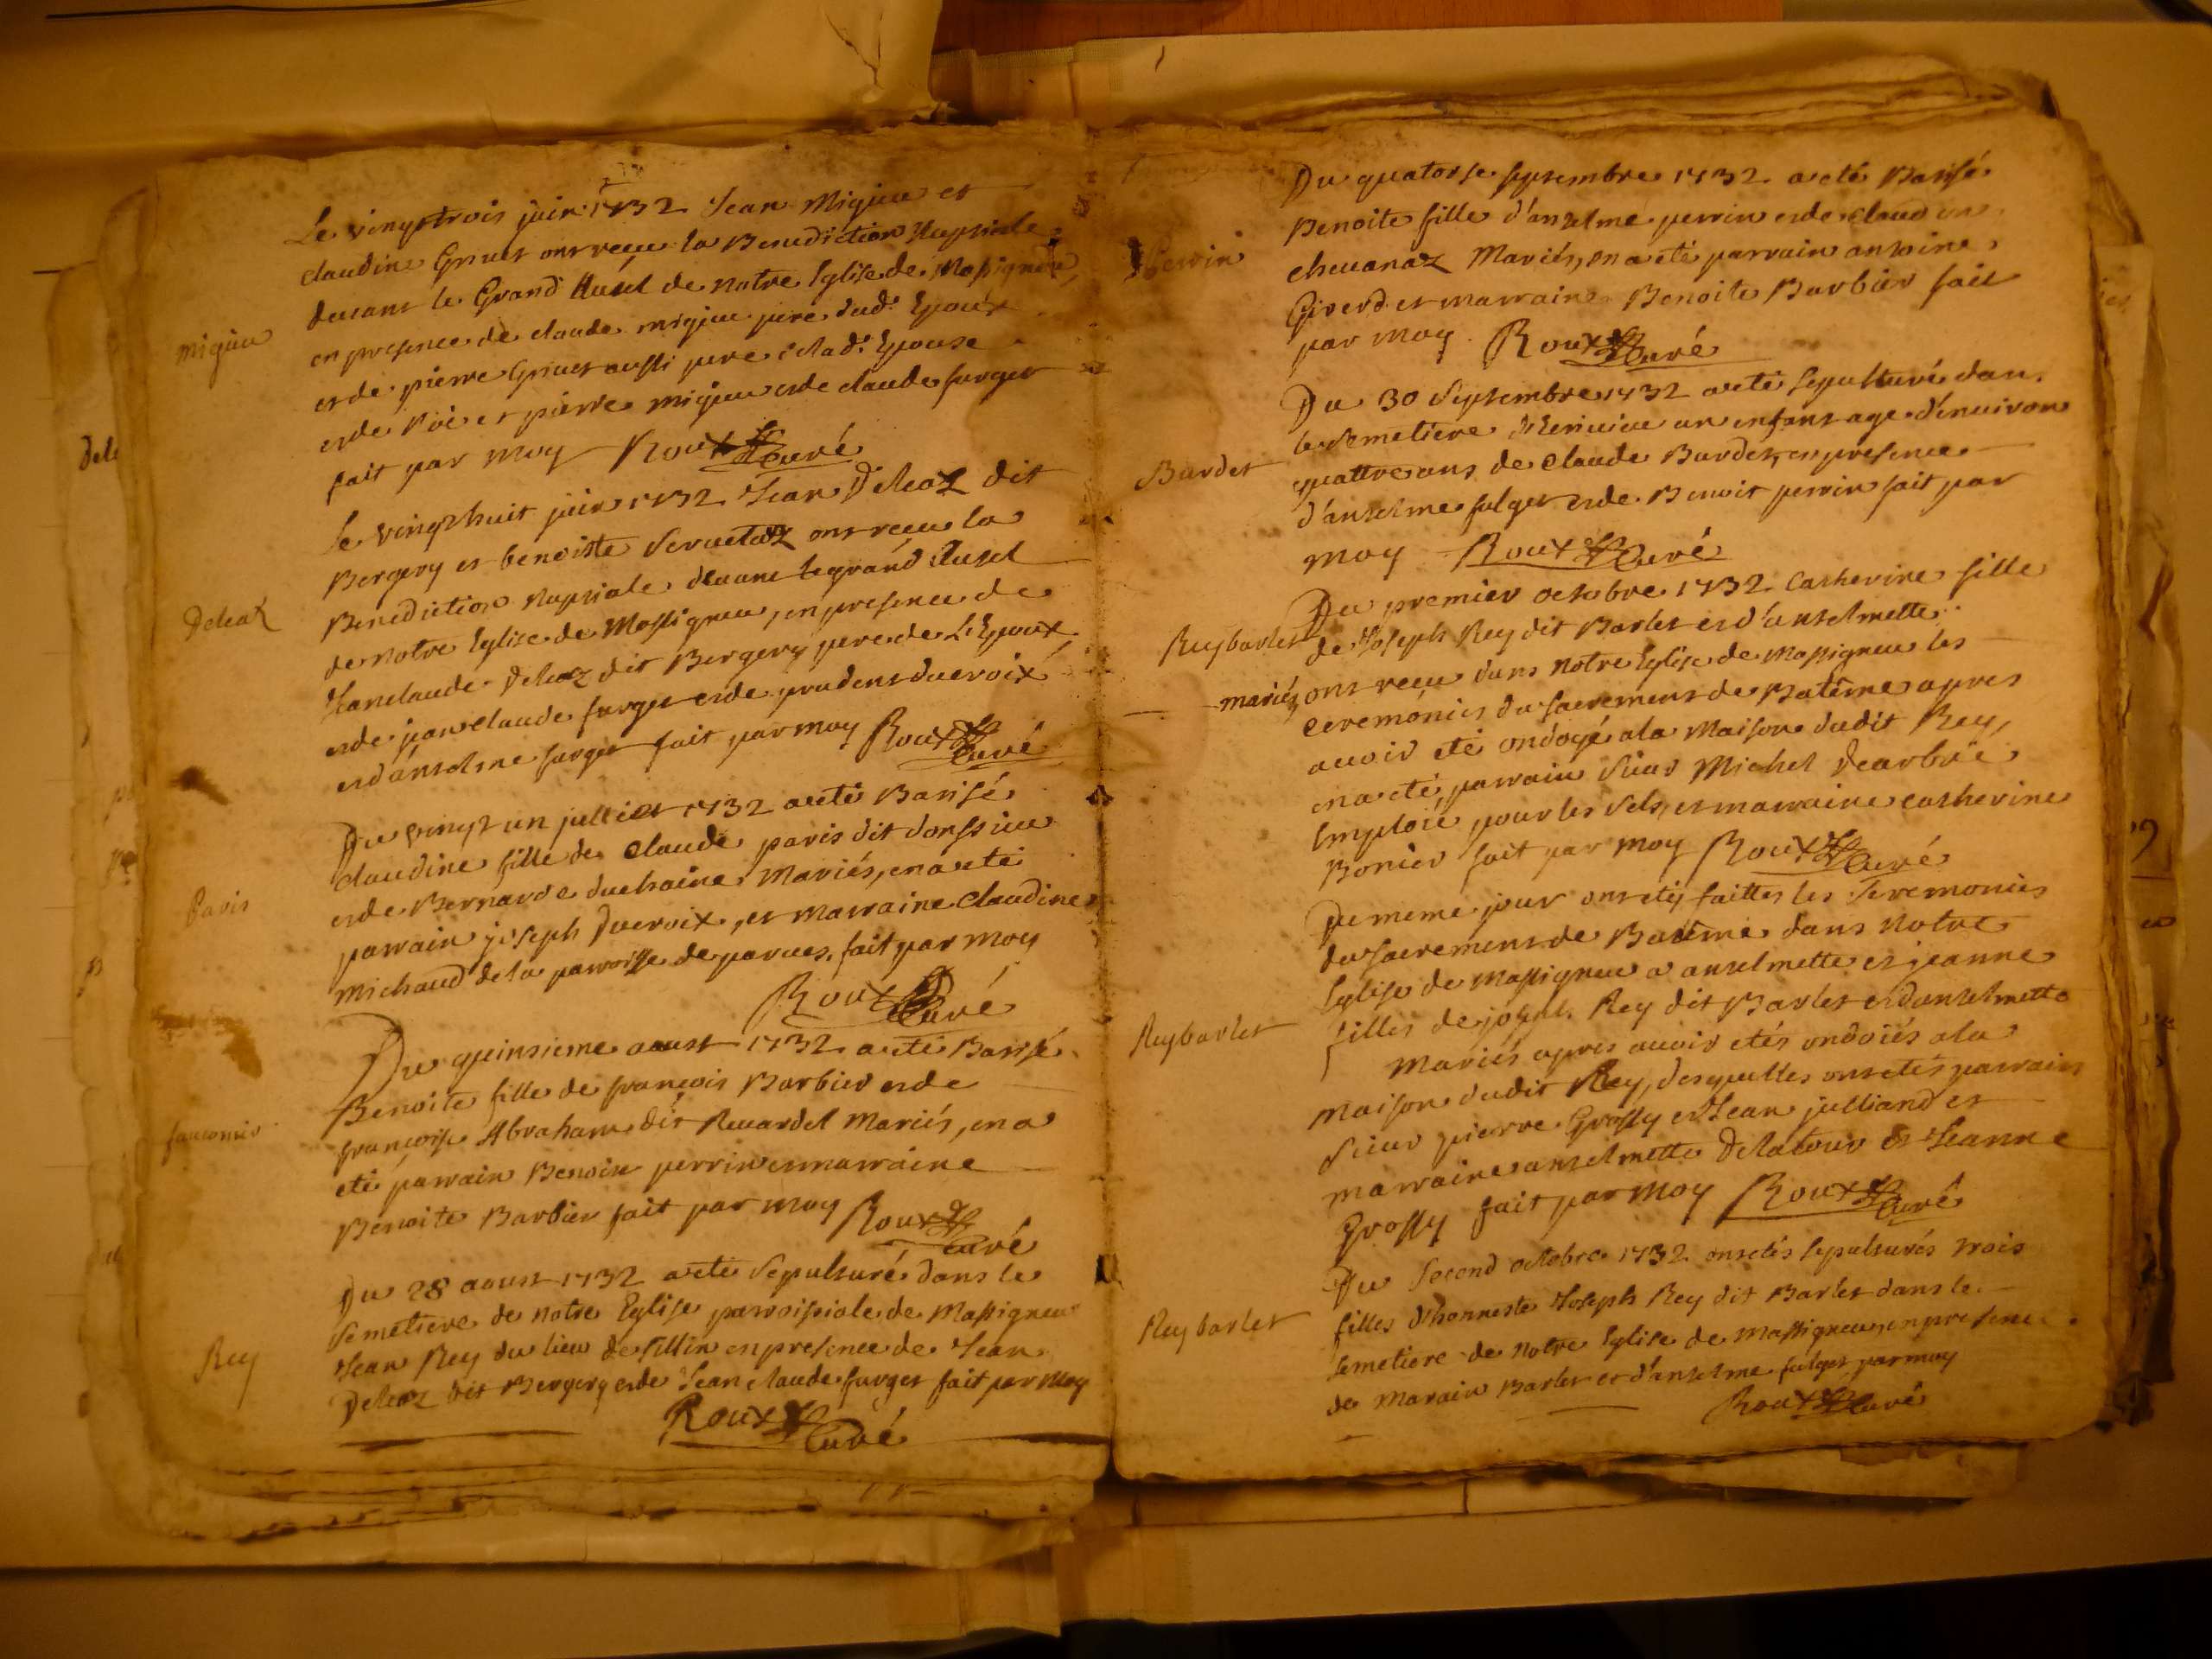 Le vingt trois juin 1732 Jean Migieu et
claudine Grinet ont receu la Benediction Nuptiale
devant le Grand Autel de notre Eglise de Massigneu,
migieu
en presence de claude migieu pere dud. Epoux
et de pierre Grinet aussi pere de lad. Epouse
et de et pierre migieu et de claude furget
fait par moy Roux Curé
Le vingt huit juin 1732 Jean Deleaz dit
Bergery et benoiste Servetaz ont receu la
Benediction Nuptiale devant le grand Autel
Deleaz
de notre Eglise de Massigneu, en presence de
Jean claude Deleaz dit Bergery pere de L'Epoux,
et de jean claude furget et de prudent ducroix
et d'anselme furget fait par moy Roux
Curé
Du vingt un julliet 1732 a eté Batisé
claudine fille de claude paris dit donssieu
Paris
et de Bernarde duchaine Mariés, en a eté
parrain joseph Ducroix, et marraine Claudine
michaud de la parroisse de parves, fait par moy
Roux Curé
Du quinsieme aoust 1732 a eté Batisé
Benoite fille de françois Barbier et de
fauconnier
françoise Abraham dit Revardel Mariés, en a
eté parrain Benoit perrin et marraine
Benoite Barbier fait par moy Roux
Curé
Du 28 aoust 1732 a eté Sepulturé dans le
semetiere de notre Eglise parroissiale de Massigneu
Rey
Jean Rey du lieu de fillin en presence de Jean
Deleaz dit Bergery et de Jean claude furget fait par moy
Roux Curé
Du quatorse septembre 1732 a eté Batisé
Benoite fille d'anselme perrin et de claudine
Perrin
chevanaz Mariés, en a eté parrain antoine
Girerd et marraine Benoite Barbier fait
par moy Roux Curé
Du 30 Septembre 1732 a eté sepulturé dans
le semetiere un enfant age d'environ
Burdet
quattre ans de Claude Burdet, en presence
d'anselme fulget et de Benoit perrin fait par
moy Roux Curé
Du premier octobre 1732 Catherine fille
Reybarlet
de Joseph Rey dit Barlet et d'anselmette
mariéz ont receu dans notre Eglise de Massigneu les
ceremonies du sacrement de Batême apres
avoir eté ondoyé a la Maison dudit Rey,
en a eté parrain Sieur Michel Dearböe
Emploié pour les sels, et marraine catherine
Bonier fait par moy Roux Curé
Du meme jour ont etéj faittes les Seremonies
du sacrement de Batême dans notre
Eglise de Massigneu a anselmette et jeanne
Reybarlet
filles de joseph Rey dit Barlet et d'anselmette
Mariés apres avoir etés ondoiés a la
Maison dudit Rey, desquelles ont etés parrain
Sieur pierre Grossy et Jean julliand et
marraine anselmette Delatour et Jeanne
Grossy fait par moy Roux Curé
Du second octobre 1732 ont etés sepulturés trois
Reybarlet
filles d'honneste Joseph Rey dit Barlet dans le
semetiere de notre Eglise de massigneu, en presence
de Marain Barlet et d'anselme fulget par moy
Roux Curé